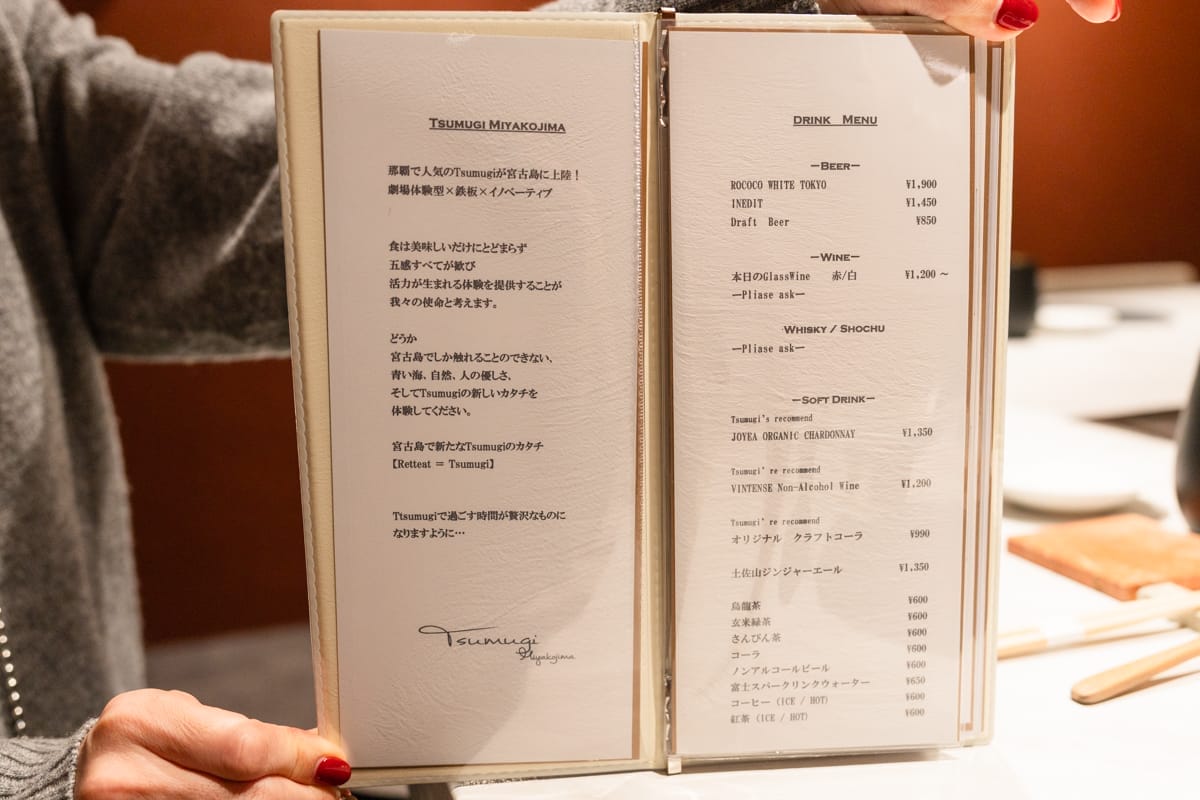 TSUMUGI MIYAKOJIMA
那覇で人気のTsumugiが宮古島に上陸！
劇場体験型×鉄板×イノベーティブ
食は美味しいだけにとどまらず
五感すべてが歓び
活力が生まれる体験を提供することが
我々の使命と考えます。
どうか
宮古島でしか触れることのできない、
青い海、自然、人の優しさ、
そしてTsumugiの新しいカタチを
体験してください。
宮古島で新たなTsumugiのカタチ
【Retteat ＝ Tsumugi】
Ttsumugiで過ごす時間が贅沢なものに
なりますように…
Tsumugi
Miyakojima
DRINK MENU
―BEER―
ROCOCO WHITE TOKYO ¥1,900
INEDIT ¥1,450
Draft Beer ¥850
―WINE―
本日のGlassWine 赤/白 ¥1,200 ～
―Pliase ask―
WHISKY / SHOCHU
―Pliase ask―
―SOFT DRINK―
Tsumugi's recommend
JOYEA ORGANIC CHARDONNAY ¥1,350
Tsumugi' re recommend
VINTENSE Non-Alcohol Wine ¥1,200
Tsumugi' re recommend
オリジナル クラフトコーラ ¥990
土佐山ジンジャーエール ¥1,350
烏龍茶 ¥600
玄米緑茶 ¥600
さんぴん茶 ¥600
コーラ ¥600
ノンアルコールビール ¥600
富士スパークリンクウォーター ¥650
コーヒー（ICE / HOT） ¥600
紅茶（ICE / HOT） ¥600